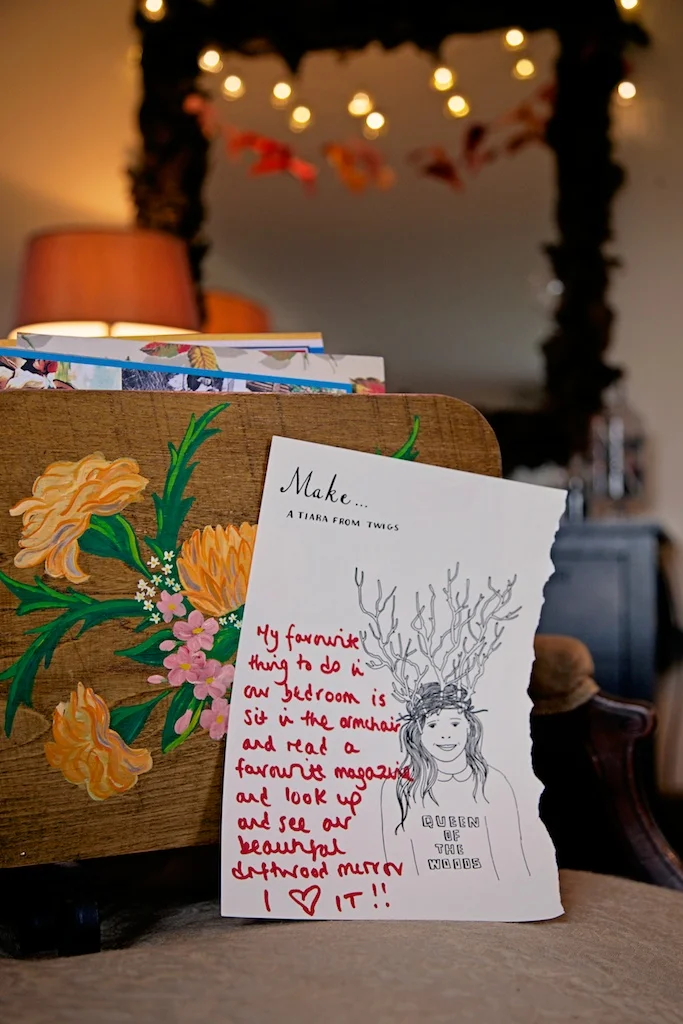 Make...
A TIARA FROM TWIGS
My favourite
thing to do in
our bedroom is
sit in the armchair
and read a
favourite magazine
and look up
and see our
beautiful
driftwood mirror
I ♡ IT!!
QUEEN
OF
THE
WOODS